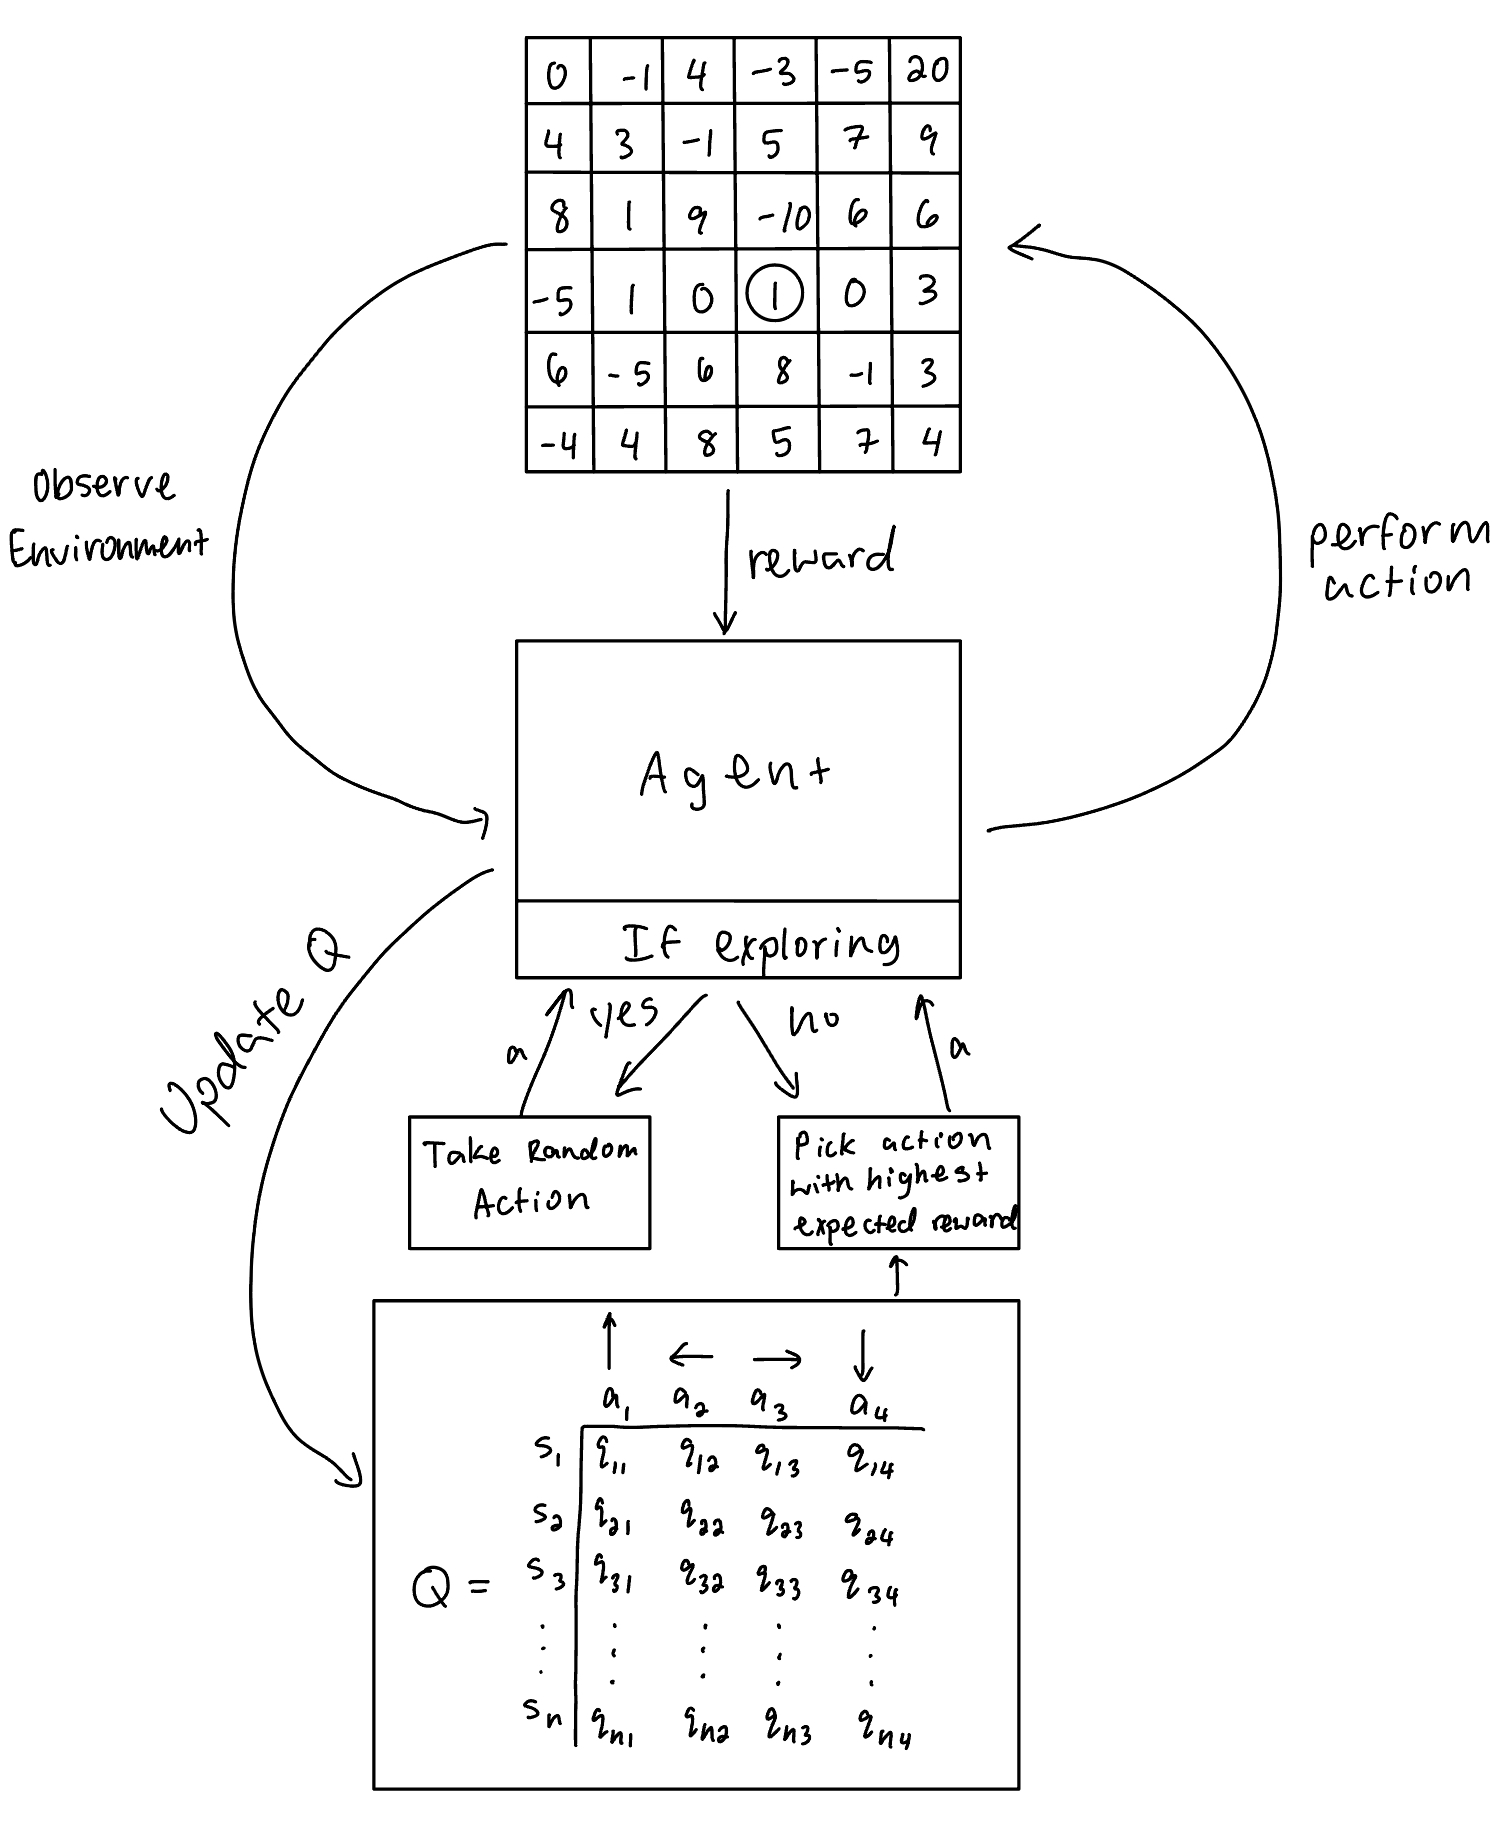 0 -1 4 -3 -5 20
4 3 -1 5 7 9
8 1 9 -10 6 6
-5 1 0 1 0 3
6 -5 6 8 -1 3
-4 4 8 5 7 4
Observe
Environment
reward
perform
action
Agent
If exploring
Update Q
yes
no
a
a
Take Random
Action
Pick action
with highest
expected reward
↑ ← → ↓
a₁ a₂ a₃ a₄
s₁ q₁₁ q₁₂ q₁₃ q₁₄
s₂ q₂₁ q₂₂ q₂₃ q₂₄
Q = s₃ q₃₁ q₃₂ q₃₃ q₃₄
⋮ ⋮ ⋮ ⋮ ⋮
sₙ qₙ₁ qₙ₂ qₙ₃ qₙ₄